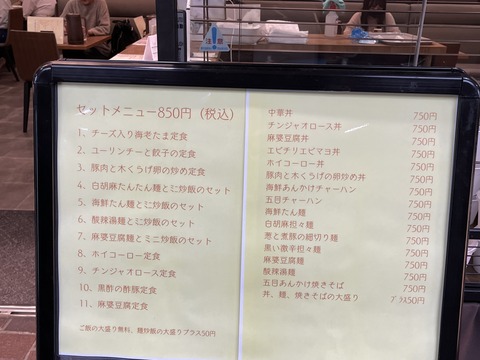 セットメニュー850円（税込）
1、チーズ入り海老たま定食
2、ユーリンチーと餃子の定食
3、豚肉と木くらげ卵の炒め定食
4、白胡麻たんたん麺とミニ炒飯のセット
5、海鮮たん麺とミニ炒飯のセット
6、酸辣湯麺とミニ炒飯のセット
7、麻婆豆腐麺とミニ炒飯のセット
8、ホイコーロー定食
9、チンジャオロース定食
10、黒酢の酢豚定食
11、麻婆豆腐定食
ご飯の大盛り無料、麺炒飯の大盛りプラス50円
中華丼 750円
チンジャオロース丼 750円
麻婆豆腐丼 750円
エビチリエビマヨ丼 750円
ホイコーロー丼 750円
豚肉と木くらげの卵炒め丼 750円
海鮮あんかけチャーハン 750円
五目チャーハン 750円
海鮮たん麺 750円
白胡麻担々麺 750円
葱と煮豚の細切り麺 750円
黒い激辛担々麺 750円
麻婆豆腐麺 750円
酸辣湯麺 750円
五目あんかけ焼きそば 750円
丼、麺、焼きそばの大盛り プラス50円